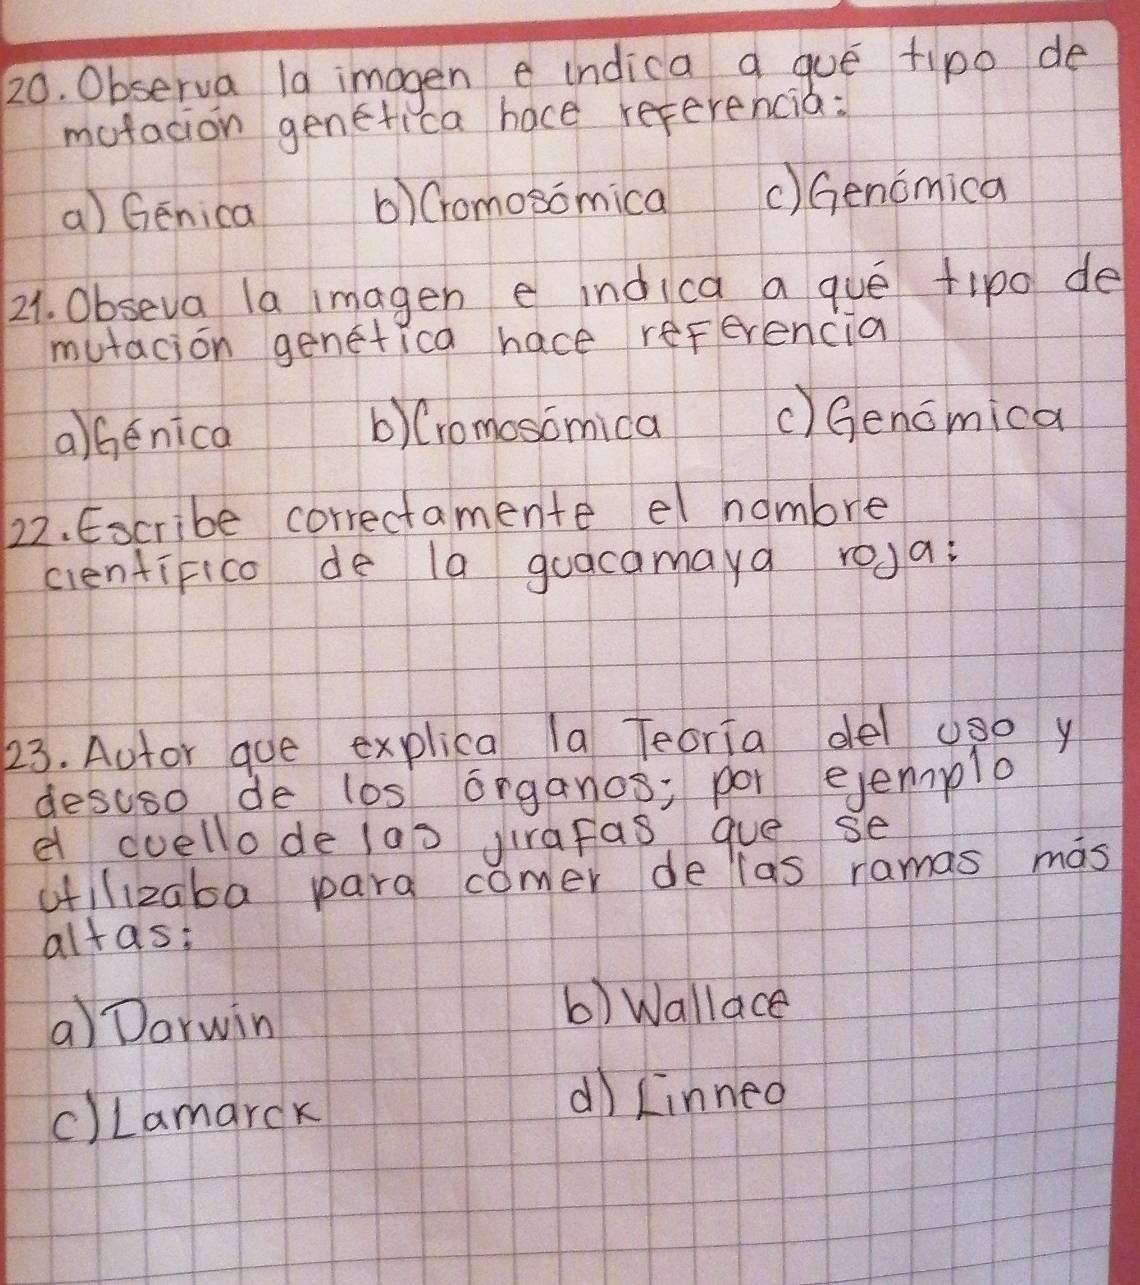 20. Observa la imagen e indica a qué tipo de
mutación genética hace referencia:
a) Génica b) Cromosómica c) Genómica
21. Obseva la imagen e indica a qué tipo de
mutación genética hace referencia
a) Génica b) Cromosómica c) Genómica
22. Escribe correctamente el nombre
científico de la guacamaya roja:
23. Autor que explica la Teoría del uso y
desuso de los órganos; por ejemplo
el cuello de las jirafas que se
utilizaba para comer de las ramas más
altas:
a) Darwin b) Wallace
c) Lamarck d) Linneo